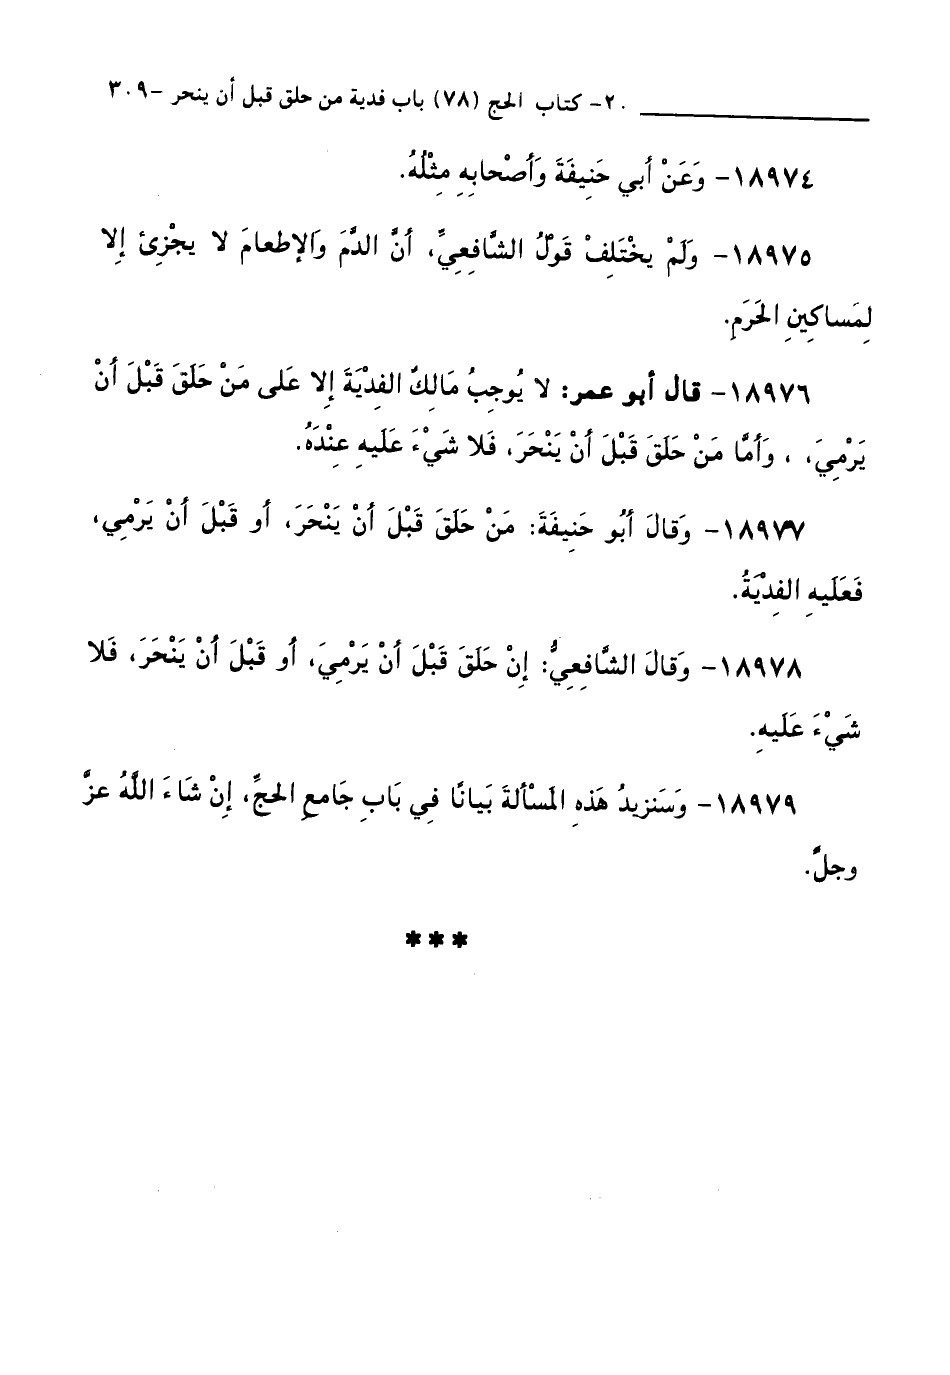 ٢٠- كتاب الحج (٧٨) باب فدية من حلق قبل أن ينحر -٣٠٩
١٨٩٧٤- وَعَنْ أبي حَنِيفَةَ وَأصْحابِهِ مِثْلُهُ.
١٨٩٧٥- وَلَمْ يخْتَلِفْ قَوْلُ الشَّافِعِيِّ، أنَّ الدَّمَ وَالإطعامَ لا يجْزِئ إلا
لِمَساكِينِ الحَرَمِ.
١٨٩٧٦- قال أبو عمر: لا يُوجِبُ مَالِكٌ الفِدْيَةَ إلا عَلى مَنْ حَلَقَ قَبْلَ أنْ
يَرْمِيَ، ، وَأمَّا مَنْ حَلَقَ قَبْلَ أنْ يَنْحَرَ، فَلا شَيْءَ عَلَيهِ عِنْدَهُ.
١٨٩٧٧- وَقالَ أبُو حَنِيفَةَ: مَنْ حَلَقَ قَبْلَ أنْ يَنْحَرَ، أو قَبْلَ أنْ يَرْمِي،
فَعَلَيهِ الفِدْيَةُ.
١٨٩٧٨- وَقالَ الشَّافِعِيُّ: إنْ حَلَقَ قَبْلَ أنْ يَرْمِيَ، أو قَبْلَ أنْ يَنْحَرَ، فَلا
شَيْءَ عَلَيهِ.
١٨٩٧٩- وَسَنزِيدُ هَذِهِ المَسْألةَ بَيانًا فِي بَابِ جَامعِ الحجِّ، إنْ شَاءَ اللَّهُ عزَّ
وجلَّ.
***